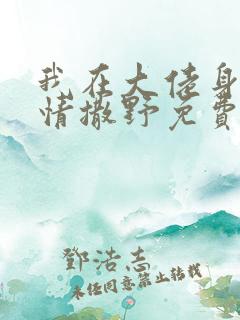 我在大佬身
情撒野免費
鄧浩志
未经同意禁止转载